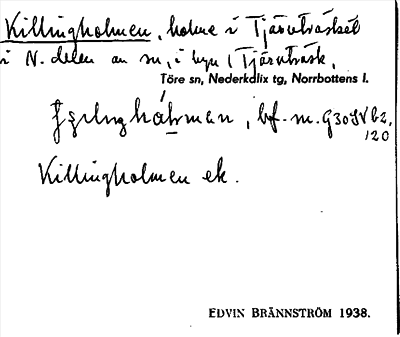 Killingholmen, holme i Tjärnträsket
i N. delen av sn, i byn Tjärnträsk.
Töre sn, Nederkalix tg, Norrbottens l.
bf. m. G30SV b2,
120
Killingholmen ek.
EDVIN BRÄNNSTRÖM 1938.